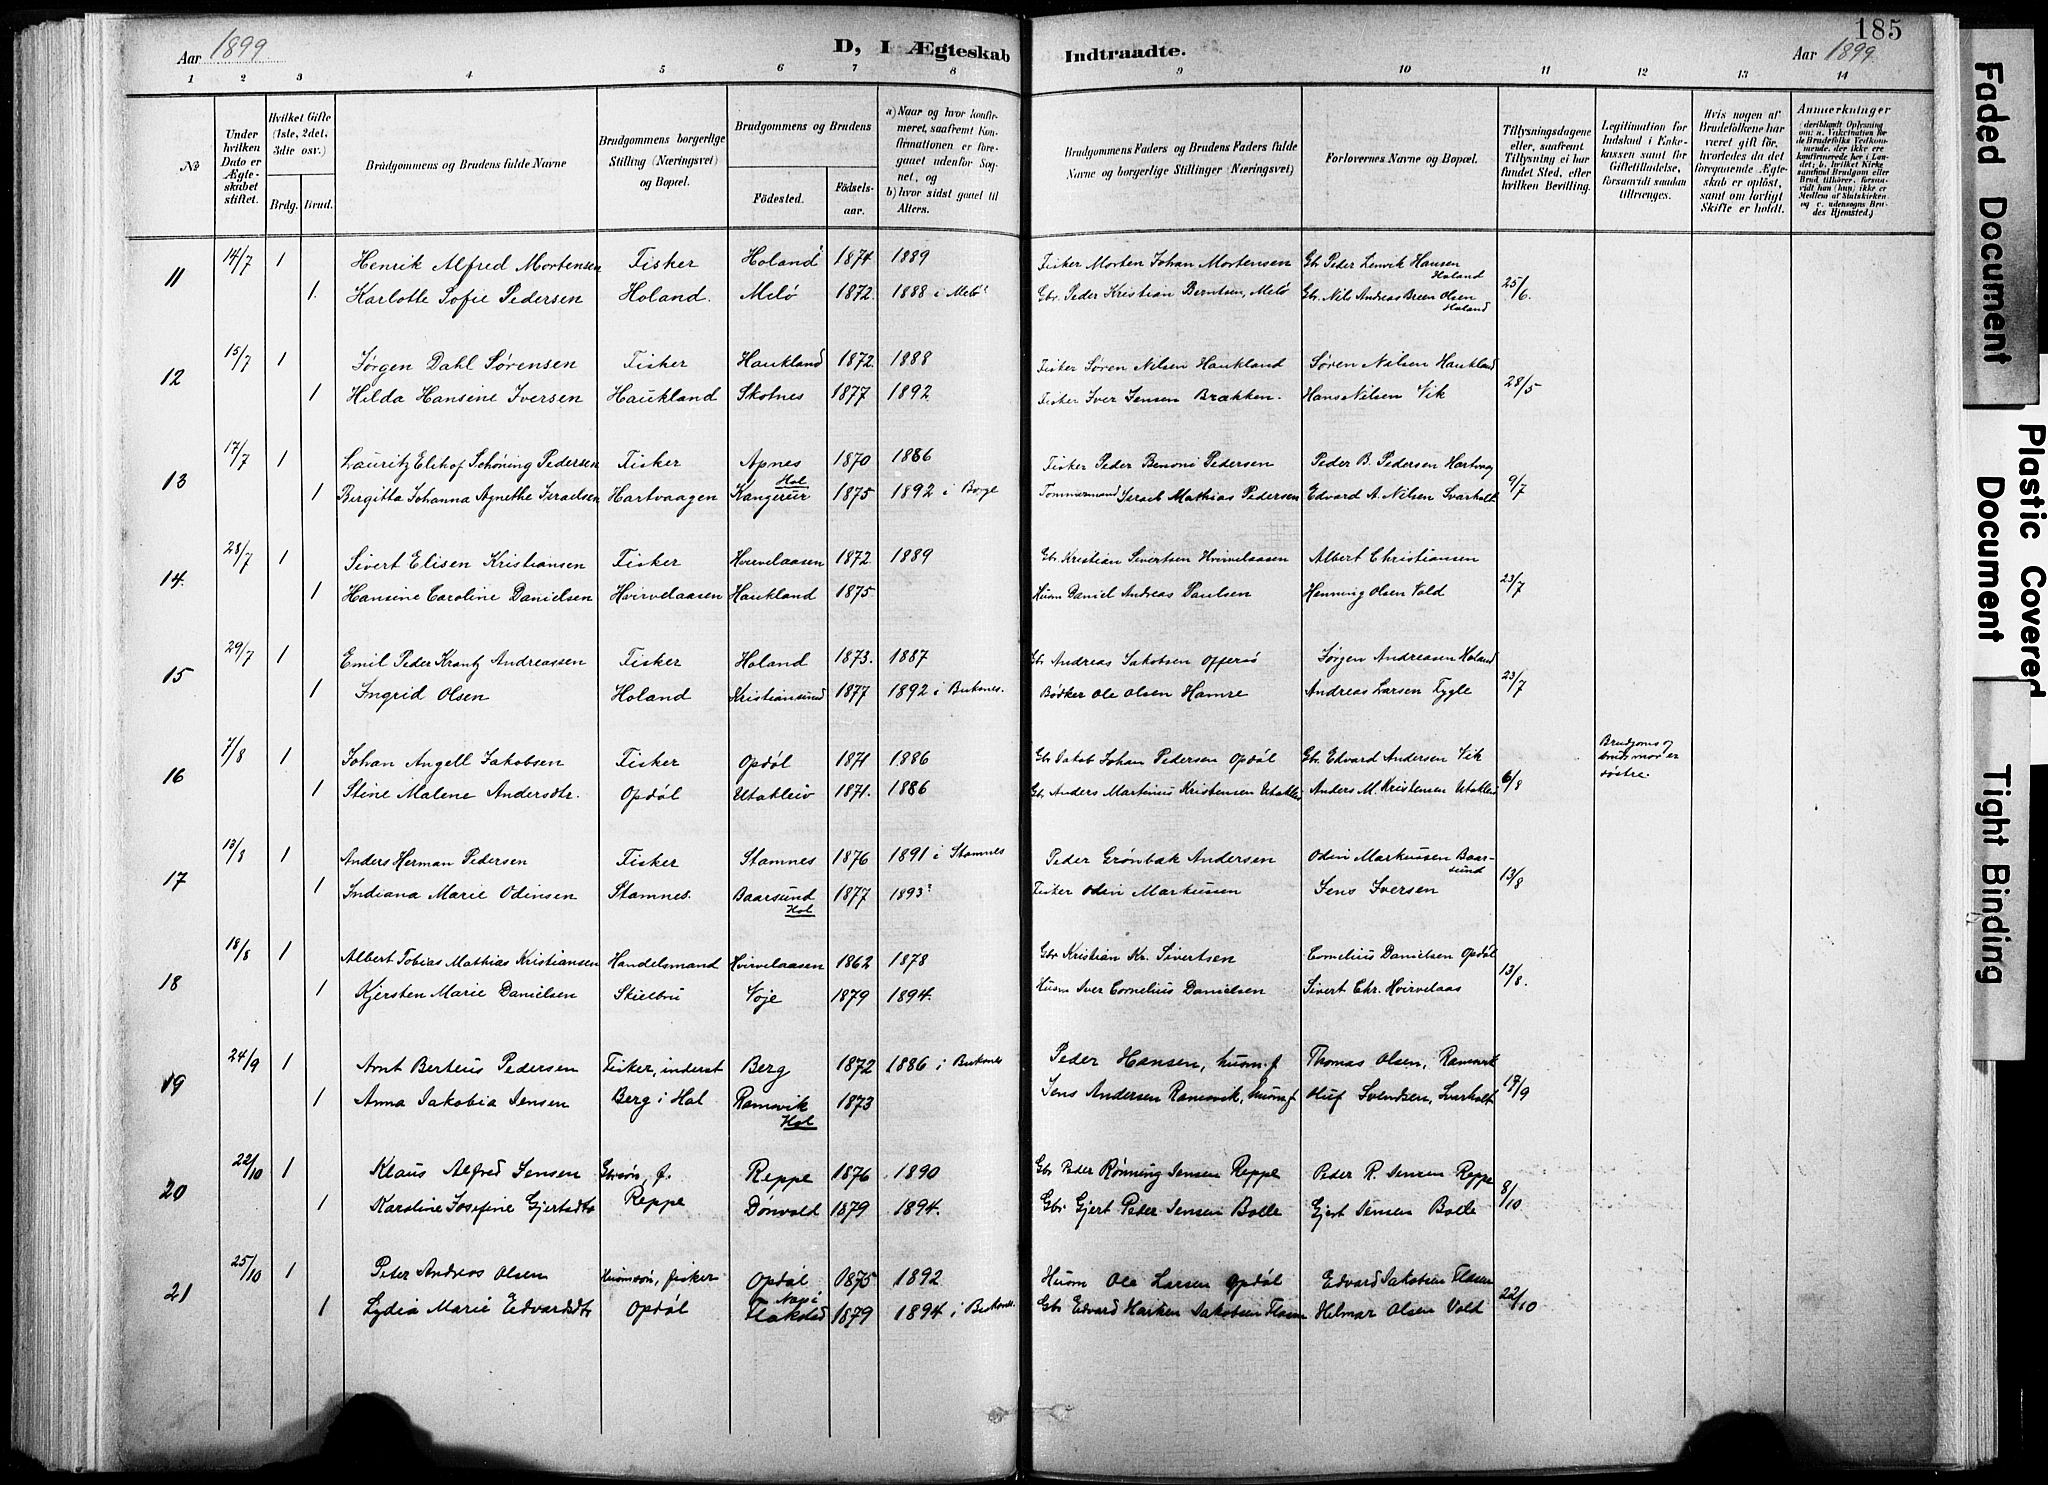 185
Aar 1899
D, I Ægteskab Indtraadte.
Aar 1899
1 2 3 4 5 6 7 8 9 10 11 12 13 14
№
Under hvilken Dato er Ægteskabet stiftet.
Hvilket Gifte (1ste, 2det, 3die osv.)
Brdg. Brud.
Brudgommens og Brudens fulde Navne
Brudgommens borgerlige Stilling (Næringsvei) og Bopæl.
Brudgommens og Brudens
Fødested. Fødselsaar.
a) Naar og hvor konfirmeret, saafremt Konfirmationen er foregaaet udenfor Sognet, og
b) hvor sidst gaaet til Alters.
Brudgommens Faders og Brudens Faders fulde Navne og borgerlige Stillinger (Næringsvei)
Forlovernes Navne og Bopæl.
Tillysningsdagene eller, saafremt Tillysning ei har fundet Sted, efter hvilken Bevilling.
Legitimation for Indskud i Enkekassen samt for Giftetilladelse, forsaavidt saadan tiltrænges.
Hvis nogen af Brudefolkene har været gift før, hvorledes da det foregaaende Ægteskab er opløst, samt om lovligt Skifte er holdt.
Anmærkninger
(deriblandt Oplysning om: a. Vakcination for de Brudefolks Vedkommende, der ikke ere konfirmerede her i Landet; b. hvilket Kirkesamfund Brudgom eller Brud tilhører, forsaavidt han (hun) ikke er Medlem af Statskirken, og c. udensogns Brudes Hjemsted.)
11 14/7 1 Henrik Alfred Mortensen Fisker Holand 1874 1889 Fisker Morten Johan Mortensen Gb. Peder Lenvik Hansen Holand
1. Karlotte Sofie Pedersen Holand. Melø 1872. 1888 i Melø Gbr. Peder Kristian Berntsen, Melø Gbr. Nils Andreas Breen Olsen Holand 25/6.
12 15/7 1 Jørgen Dahl Sørensen Fisker Haukland 1872. 1888 Fisker Søren Nilsen Haukland Søren Nilsen Haukland
1 Hilda Hansine Iversen Haukland Skotnes 1877 1892 Fisker Iver Jensen Brækken. Hans Nilsen Vik 28/5
13 17/7 1 Lauritz Elihof Schöning Pedersen Fisker Apnes Hol 1870 1886 Fisker Peder Benoni Pedersen Peder B. Pedersen Hartvag
1 Birgitta Johanna Agnethe Israelsen Hartvaagen Kangerur 1875 1892 i Borge Tømmermand Israel Mathias Pedersen Edvard A. Nilsen Svarholt 9/7
14. 28/7 1 Sivert Elisen Kristiansen Fisker Hvirvelaasen 1872. 1889 Gb. Kristian Sivertsen Hvirvelaasen Albert Christiansen
1 Hansine Caroline Danielsen Hvirvelaasen Haukland 1875 Husm Daniel Andreas Paulsen Henning Olsen Vold 23/7
15 29/7 1 Emil Peder Krantz Andreassen Fisker Holand 1873. 1887 Gb. Andreas Jakobsen Offersø Jørgen Andreasen Holand
1 Ingrid Olsen Holand Kristiansund 1877 1892 i Buksnes. Bødker Ole Olsen Hamre Andreas Larsen Fygle 23/7
16 7/8 1 Johan Angell Jakobsen Fisker Opdøl 1871 1886 Gb. Jakob Johan Pedersen Opdøl Gb. Edvard Andersen Vik Brudgoms og bruds mor er søstre.
1 Stine Malene Andersdtr. Opdøl Utakleiv 1871. 1886 Gb. Anders Martinus Kristensen Utakleiv Anders M. Kristensen Utakleiv 6/8
17 13/8 1 Anders Herman Pedersen Fisker Stamnes 1876 1891 i Stamnes Peder Grønbæk Andersen Odin Markussen Baarsund
1 Indiana Marie Odinsen Stamnes. Baarsund Hol 1877 1893 Fisker Odin Markussen Jens Iversen 13/8
18 18/8 1 Albert Tobias Mathias Kristiansen Handelsmand Hvirvelaasen 1862 1878 Gbr. Kristian Kr. Sivertsen Cornelius Danielsen Opdøl
1 Kjersten Marie Danielsen Skielbru Voje 1879 1894. Husm Iver Cornelius Danielsen Sivert Chr. Hvirvelaas 13/8.
19 24/9 1 Arnt Berteus Pedersen Fisker, inderst Berg 1872 1886 i Buksnes Peder Hansen, husm. f Thomas Olsen, Ramsvik
1 Anna Jakobia Jensen Berg i Hol Ramsvik Hol 1873 Jens Andersen Ramsvik, husm f Oluf Svendsen, Svarholt 17/9
20 22/10 1 Klaus Alfred Jensen Gbrsøn, f. Reppe 1876 1890 Gbr Peder Rønning Jensen Reppe Peder R. Jensen Reppe
1 Karoline Josefine Gjertsdtr Reppe Dønvold 1879 1894. Gbr Gjert Peder Jensen Bolle Gjert Jensen Bolle 8/10
21 25/10 1 Peter Andreas Olsen Husmsøn, fisker Opdøl 1875 1892 Husm Ole Larsen Opdøl Edvard Jakobsen
1 Lydia Marie Edvardsdtr Opdøl Nap i Flakstad 1879 1894 i Buksnes Gbr Edvard Jakobsen Helmar Olsen Vold 22/10
Faded Document
Plastic Covered Document
Tight Binding